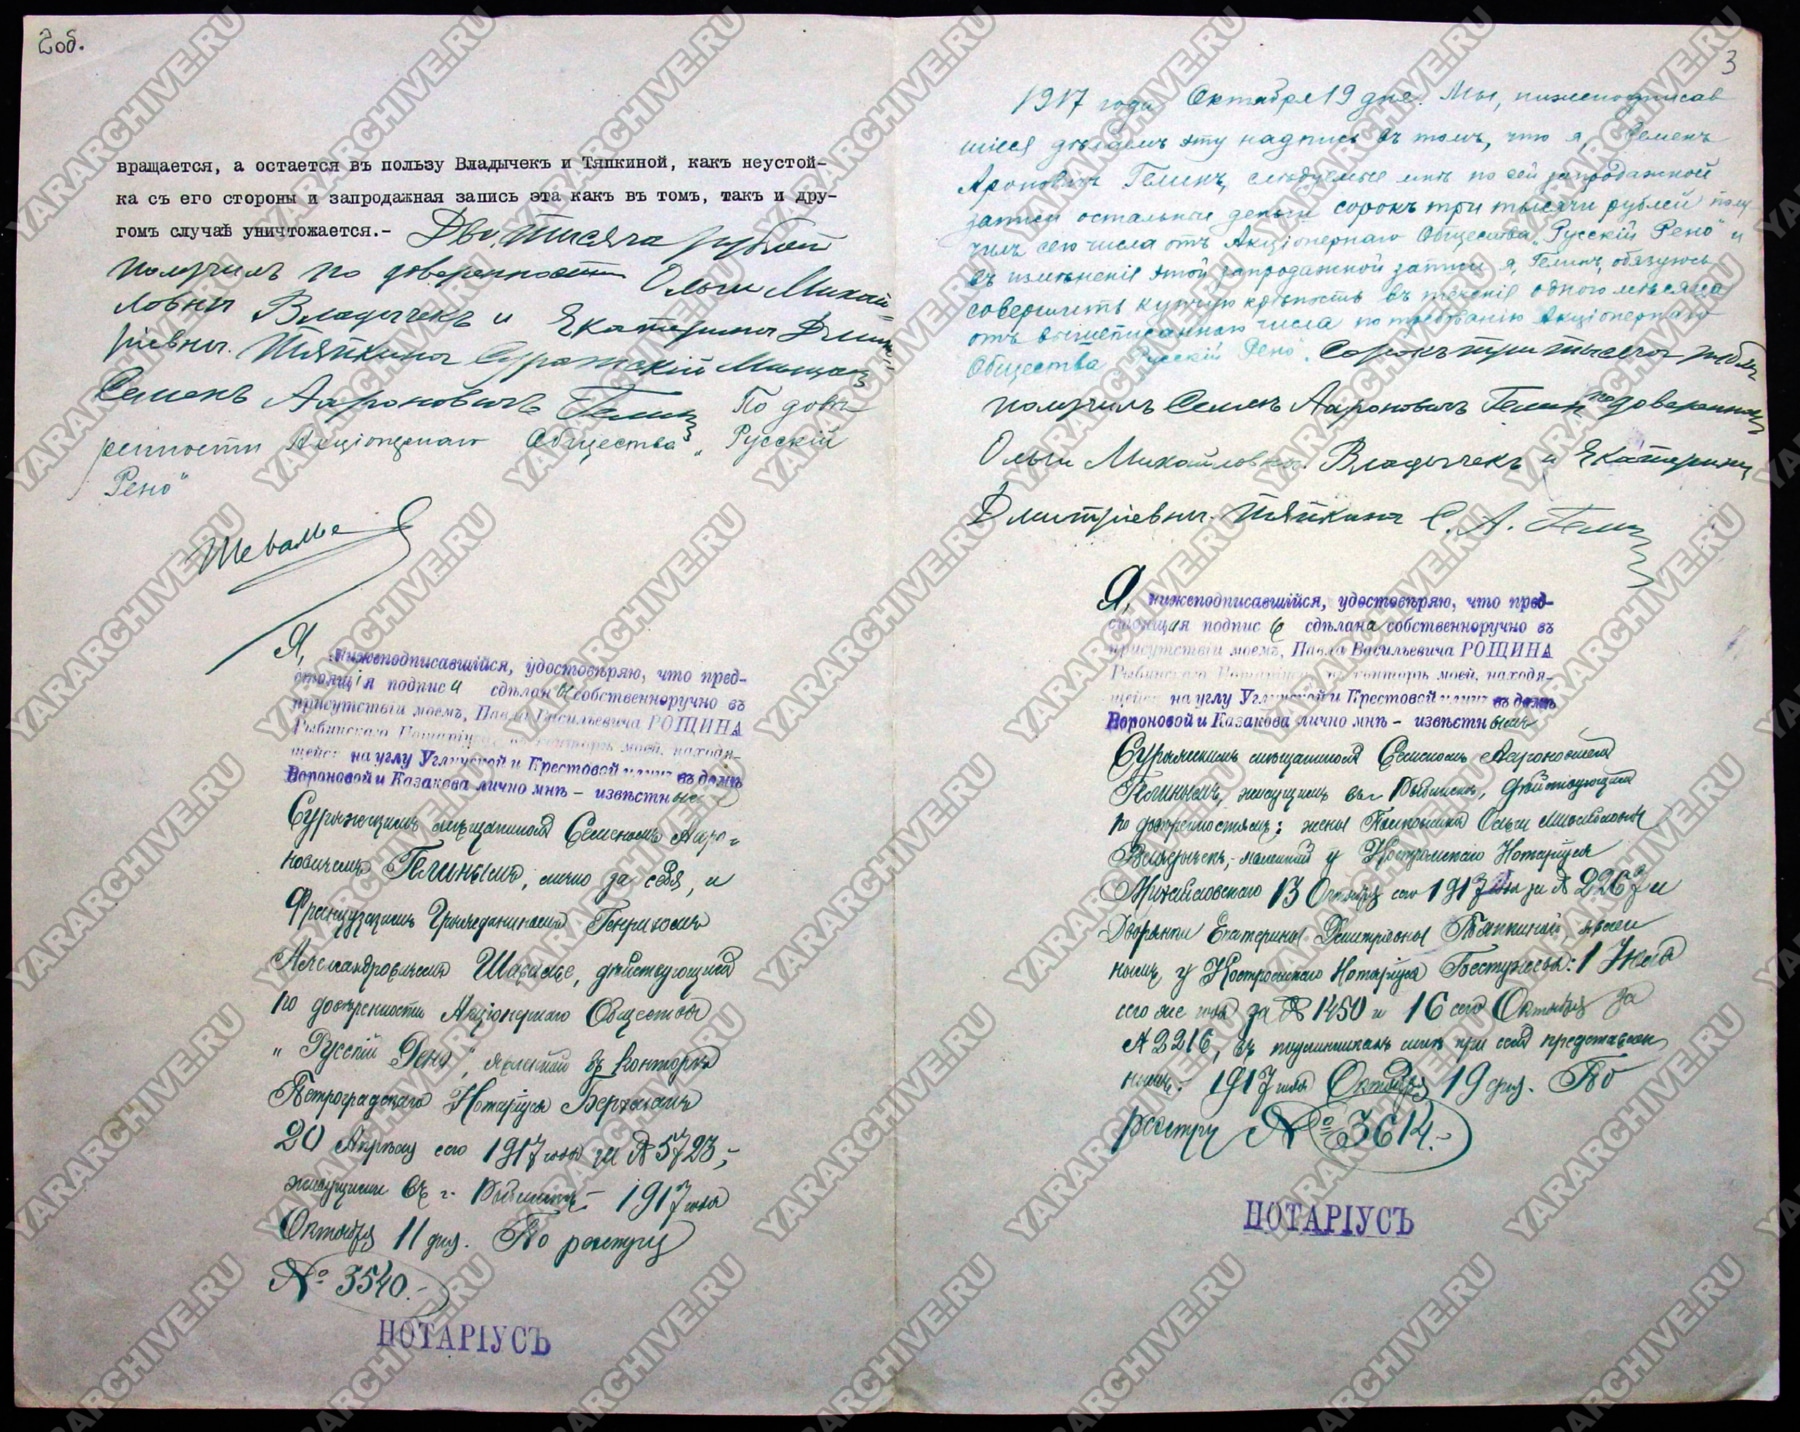 2 об.
вращается, а остается въ пользу Владычекъ и Тяпкиной, какъ неустой-
ка съ его стороны и запродажная запись эта какъ въ томъ, такъ и дру-
гомъ случаѣ уничтожается.- Две тысяча рублей
получилъ по доверенности Ольги Михай-
ловны Владычекъ и Екатерины Дмит-
ріевны Тяпкины Суражскій Мещан
Семенъ Аароновичъ Гелин По довѣ-
ренности Акціонернаго Общества „Русскій
Рено“
Шевалье
Я, нижеподписавшійся, удостовѣряю, что пред-
стоящія подписи сдѣланы собственноручно въ
присутствіи моемъ, Павла Васильевича РОЩИНА
Рыбинскаго Нотаріуса, въ конторѣ моей, находя-
щейся на углу Угличской и Крестовой улицъ въ домѣ
Вороновой и Казакова лично мнѣ - извѣстными
Суражскимъ мѣщаниномъ Семеномъ Ааро-
новичемъ Гелинымъ, лично за себя, и
Французскимъ Гражданиномъ Генрихомъ
Александровичемъ Шевалье, дѣйствующимъ
по довѣренности Акціонернаго Общества
„Русскій Рено“, явленной въ конторѣ
Петроградскаго Нотаріуса
20 Апрѣля сего 1917 года за № 5723,
живущими въ г. Рыбинскѣ - 1917 года
Октября 11 дня. По реестру
№ 3540.-
НОТАРІУСЪ
3
1917 года Октября 19 дня. Мы, нижеподписав
шіеся дѣлаемъ эту надпись въ томъ, что я, Семенъ
Ароновичъ Гелинъ, слѣдуемые мнѣ по сей запродажной
записи остальные деньги сорокъ три тысячи рублей полу
чилъ сего числа отъ Акціонернаго Общества „Русскій Рено“ и
въ измѣненіе этой запродажной записи я, Гелинъ, обязуюсь
совершить купчую крѣпость въ теченіе одного мѣсяца
отъ вышеписаннаго числа по требованію Акціонернаго
Общества „Русскій Рено“. Сорокъ три тысячи рублей
получилъ Семенъ Аароновичъ Гелин по доверенности
Ольги Михайловны Владычекъ и Екатерины
Дмитріевны Тяпкины С. А. Гелин
Я, нижеподписавшійся, удостовѣряю, что пред-
стоящая подпись сдѣлана собственноручно въ
присутствіи моемъ, Павла Васильевича РОЩИНА
Рыбинскаго Нотаріуса, въ конторѣ моей, находя-
щейся на углу Угличской и Крестовой улицъ въ домѣ
Вороновой и Казакова лично мнѣ - извѣстнымъ
Суражскимъ мѣщаниномъ Семеномъ Аароновичемъ
Гелинымъ, живущимъ въ г. Рыбинскѣ, дѣйствующимъ
по довѣренностямъ: жены Полковника Ольги Михайловны
Владычекъ, явленной у Костромского Нотаріуса
Михайловскаго 13 Октября сего 1917 года за № 2267 и
Дворянки Екатерины Дмитріевны Тяпкиной явлен
нымъ, у Костромского Нотаріуса 1 Іюля
сего же года за № 1450 и 16 сего Октября за
№ 2216, въ подлинникахъ мнѣ при семъ представлен
нымъ. 1917 года Октября 19 дня. По
реестру № 3614.-
НОТАРІУСЪ
YARARCHIVE.RU